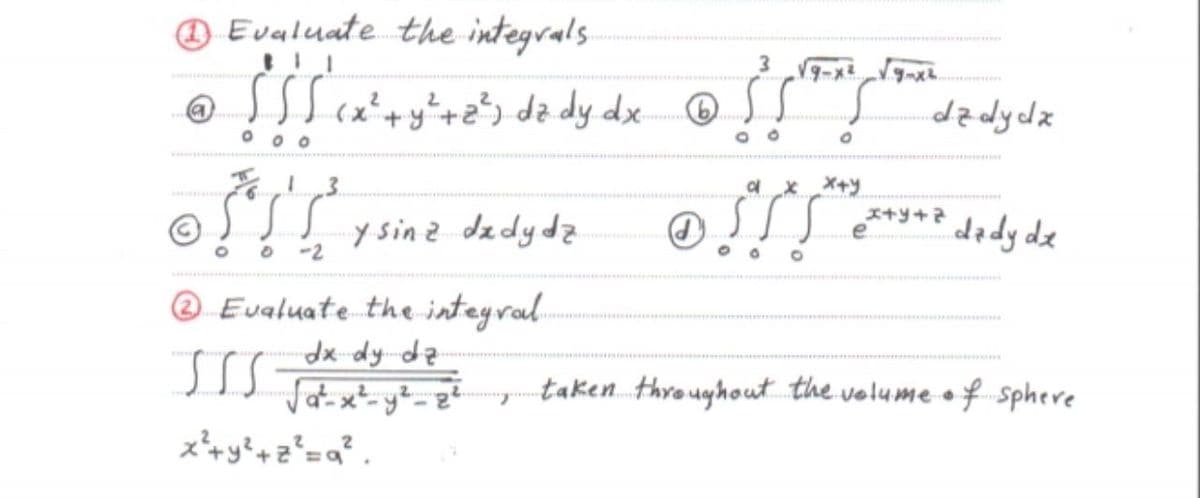 ① Evaluate the integrals
ⓐ ∫₀¹ ∫₀¹ ∫₀¹ (x²+y²+z²) dz dy dx ⓑ ∫₀³ ∫₀^√(9-x²) ∫₀^√(9-x²) dz dy dx
ⓒ ∫₀^(π/6) ∫₀¹ ∫₋₂³ y sin z dx dy dz ⓓ ∫₀^a ∫₀^x ∫₀^(x+y) e^(x+y+z) dz dy dx
② Evaluate the integral
∫∫∫ dx dy dz / √(a²-x²-y²-z²) , taken throughout the volume of sphere
x²+y²+z²=a².